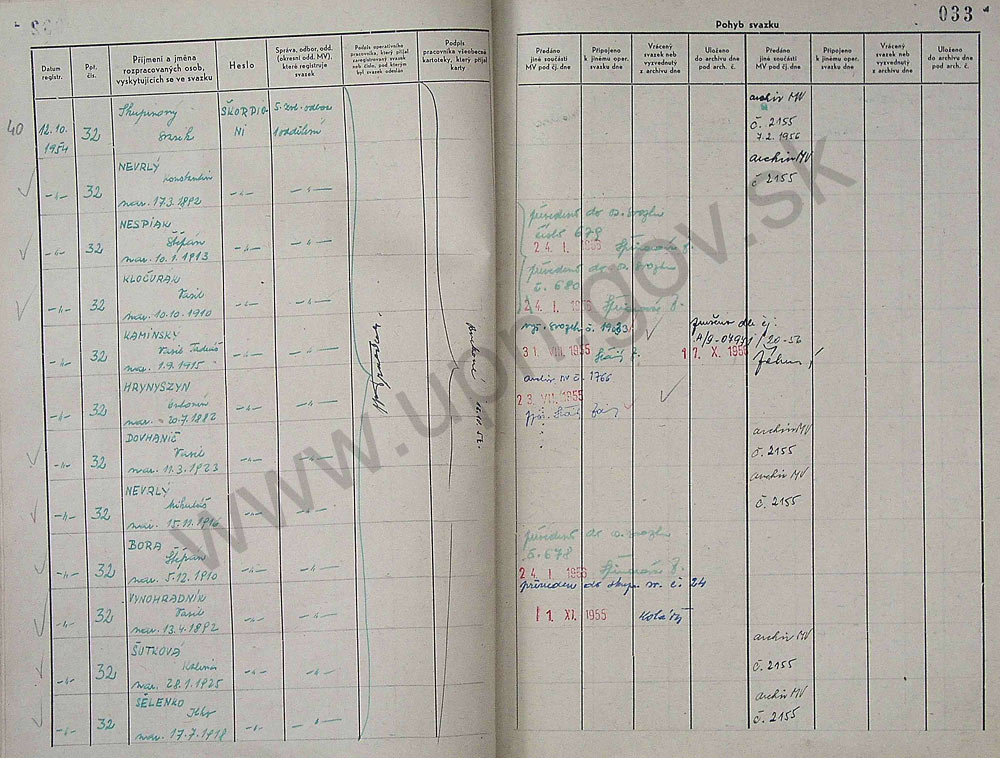 033
Pohyb svazku
Datum registr.
Poř. čís.
Příjmení a jména rozpracovaných osob, vyskytujících se ve svazku
Heslo
Správa, odbor, odd. (okresní odd. MV), které registruje svazek
Podpis operativního pracovníka, který přijal zaregistrovaný svazek neb číslo, pod kterým byl svazek odeslán
Podpis pracovníka všeobecné kartoteky, který přijal karty
Předáno jiné součásti MV pod čj. dne
Připojeno k jinému oper. svazku dne
Vrácený svazek neb vyzvednutý z archivu dne
Uloženo do archivu dne pod arch. č.
Předáno jiné součásti MV pod čj. dne
Připojeno k jinému oper. svazku dne
Vrácený svazek neb vyzvednutý z archivu dne
Uloženo do archivu dne pod arch. č.
40
12.10. 1954 32 Skupinový svazek ŠKORPIONI 5. odbor 1 oddělení
archiv MV
č. 2155
7.2. 1956
NEVRLÝ
Konstantin
-"- 32 -"- -"-
nar. 17.3.1892
archiv MV
č 2155
NESPIAK
Štěpán
-"- 32 -"- -"-
nar. 10.1.1913
převedeno do
číslo 679
24. I. 1956
KLOČURAK
Vasil
-"- 32 -"- -"-
nar. 10.10.1910
převedeno do
č. 680
24. I. 1956
KAMINSKÝ
Vasil Tadiáš
-"- 32 -"- -"-
nar. 1.9.1915
31. VIII. 1955
17. X. 1955
HRYNYSZYN
-"- 32 -"- -"-
nar. 20.7.1882
archiv MV č. 1766
23. VII. 1955
DOVHANIČ
Vasil
-"- 32 -"- -"-
nar. 11.3.1923
archiv MV
č. 2155
NEVRLÝ
Mikuláš
-"- 32 -"- -"-
nar. 15.11.1916
archiv MV
č. 2155
BORA
Štěpán
-"- 32 -"- -"-
nar. 5.12.1910
převedeno do
č. 678
24. I. 1956
VYNOHRADNÍK
Vasil
-"- 32 -"- -"-
nar. 13.4.1892
převeden do skup. sv. č. 24
11. XI. 1955 Kolář
ŠUTKOVÁ
-"- 32 -"- -"-
nar. 28.1.1925
archiv MV
č. 2155
SĚLENKO
-"- 32 -"- -"-
nar. 17.7.1918
archiv MV
č. 2155
www.upn.gov.sk